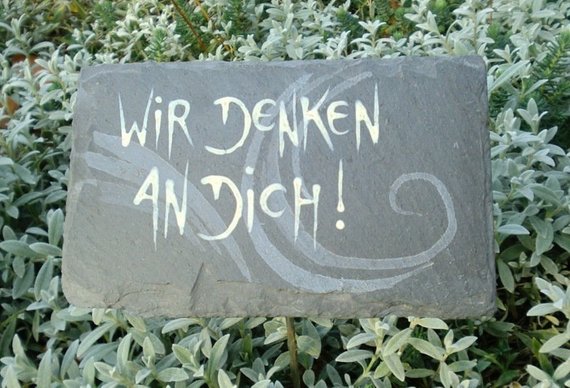 WiR DENKEN
AN DiCH!